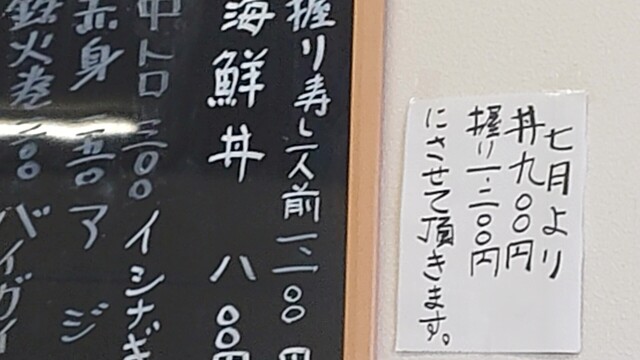 七月より
丼九〇〇円
握り一.二〇〇円
にさせて頂きます。
握り寿し一人前
海鮮丼 八〇〇円
中トロ 三〇〇 イシナギ
赤身 二五〇 アジ
鉄火巻